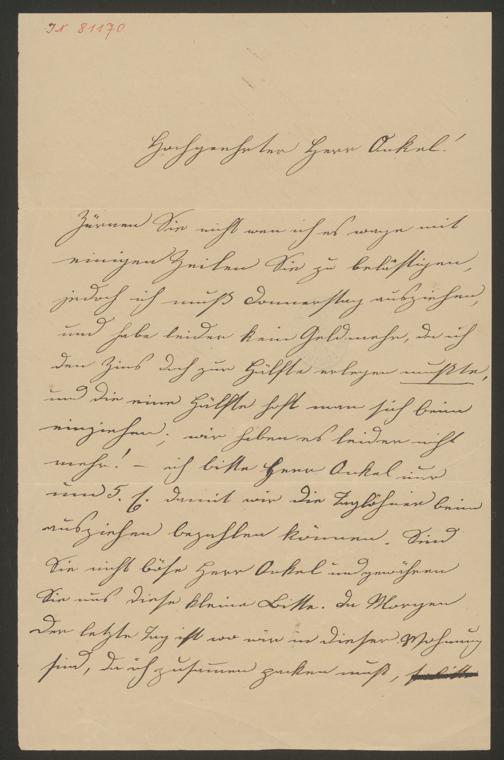 IN 81170
Hochgeehrter Herr Onkel!
Zürnen Sie nicht wen ich es wage mit
einigen Zeilen Sie zu belästigen,
jedoch ich muß Donnerstag ausziehen,
und habe leider kein Geld mehr, da ich
den Zins doch zur Hälfte erlegen mußte,
und die eine Hälfte hohlt man sich beim
einziehen; wir haben es leider nicht
mehr! – ich bitte Herr Onkel nur
um 5. f. damit wir die Taglöhner beim
ausziehen bezahlen können. Sind
Sie nicht böse Herr Onkel und gewähren
Sie uns diese kleine Bitte. Da Morgen
der letzte Tag ist wo wir in dieser Wohnung
sind, da ich zusammen packen muß,